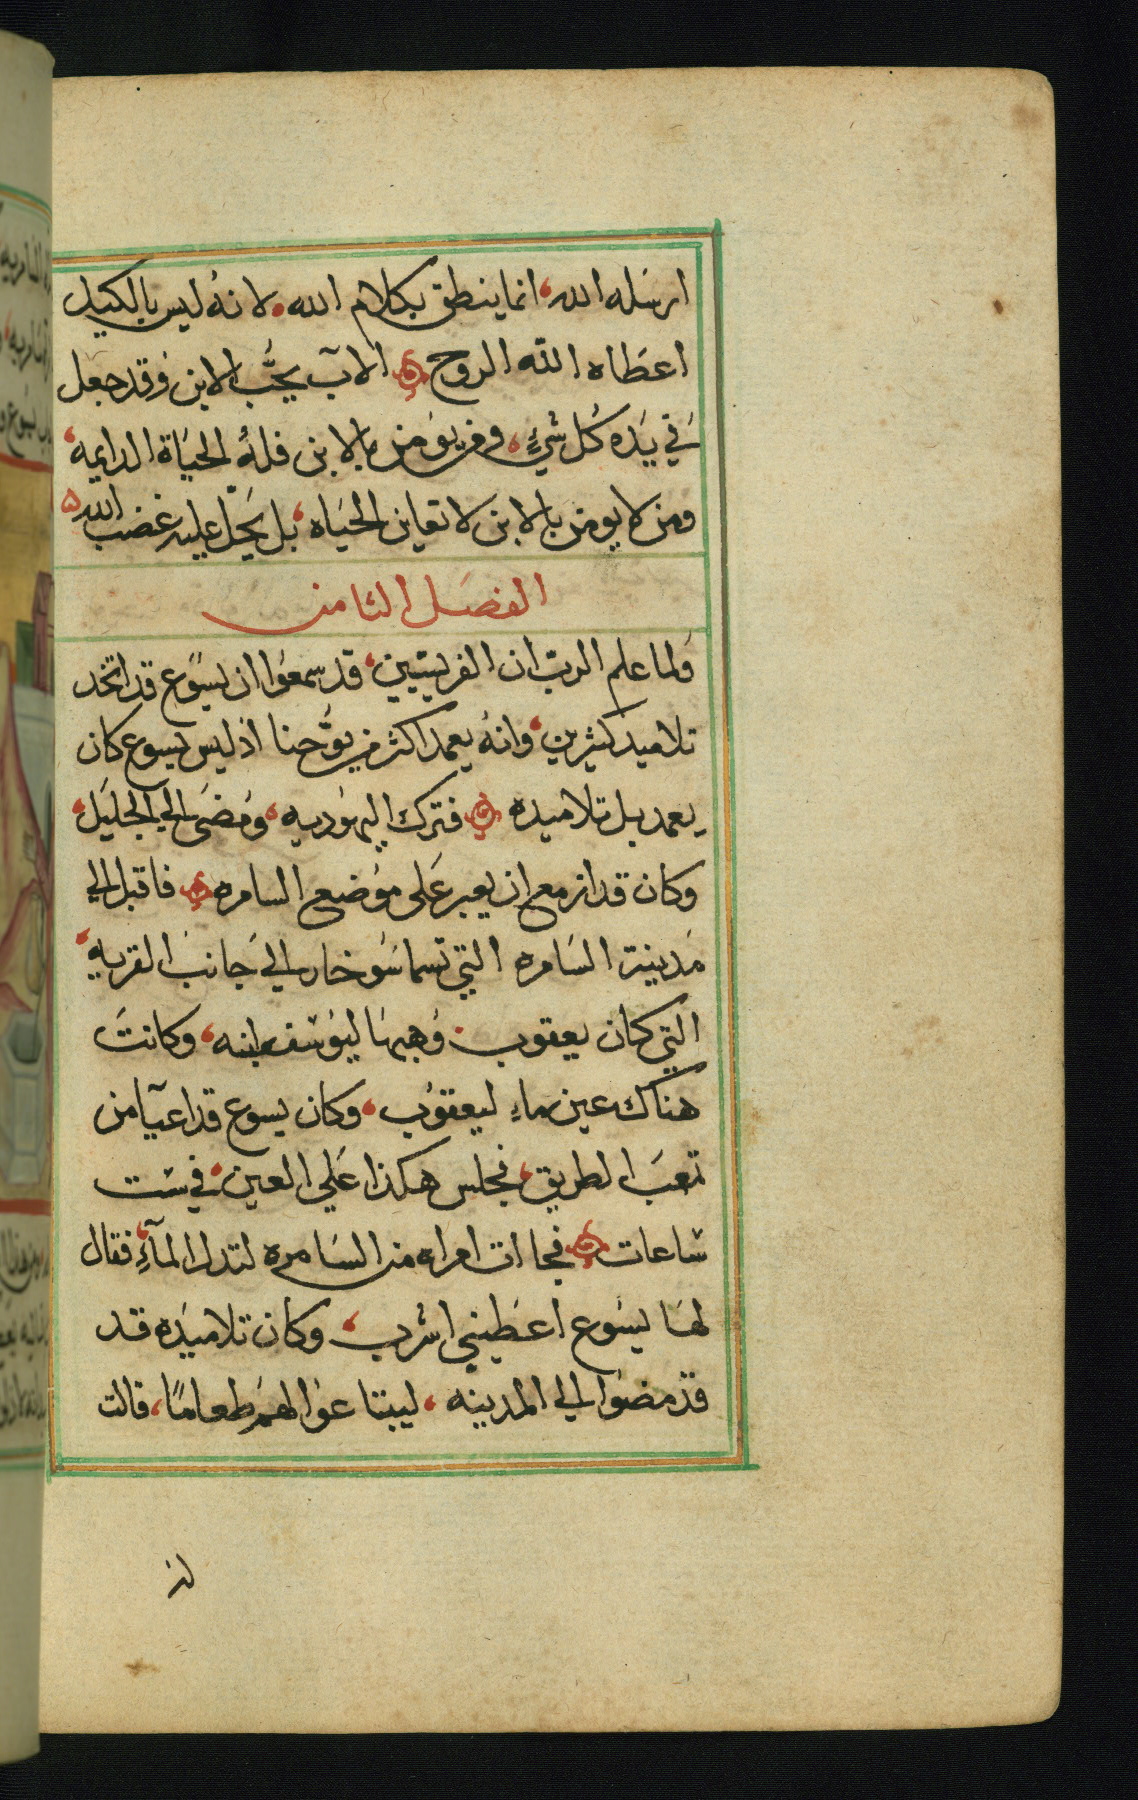 ارسله الله، انما ينطق بكلام الله. لانهُ ليس بالكيل
اعطاه الله الروح الاب يحبُّ الابن وقد جعل
في يَده كُل شيءٍ، فمن يومن بالابن فلهُ الحيَاة الدايمه،
ومن لا يومن بالابن لا تعاين الحيَاه، بل يَحلّ عليه غضب الله
الفصَل الثامن
وَلما علم الربّ ان الفريسَيين، قد سمعَوا ان يسُوع قد اتخد
تلاميد كثيرين، وانهُ يعمد اكثر من يوُحنا اذ ليس يسوع كان
يعمد بل تلاميده فترك اليهوديه، وَمضَى الي الجليَل،
وكان قد ازمع ان يعبر عَلى موَضع السامره فاقبل الي
مَدينة السَامره التي تسما سَوخار الي جَانب القريه،
التي كان يعقوب وَهبهَا ليوَسف ابنه، وكانتَ
هناك عين ماءِ ليعقوُب، وكان يسوع قد اعيآ من
تعبَ الطريق، فجلس هكذا عَلي العين، في ست
ساعات فجاات امراه من السَامره لتدلا المآءِ، فقال
لهَا يسَوع اعَطيني اشرب، وكان تلاميَده قد
قدَ مضوَا الي المدينه، ليبتاعوَا لهمَ طعامًا، قالت